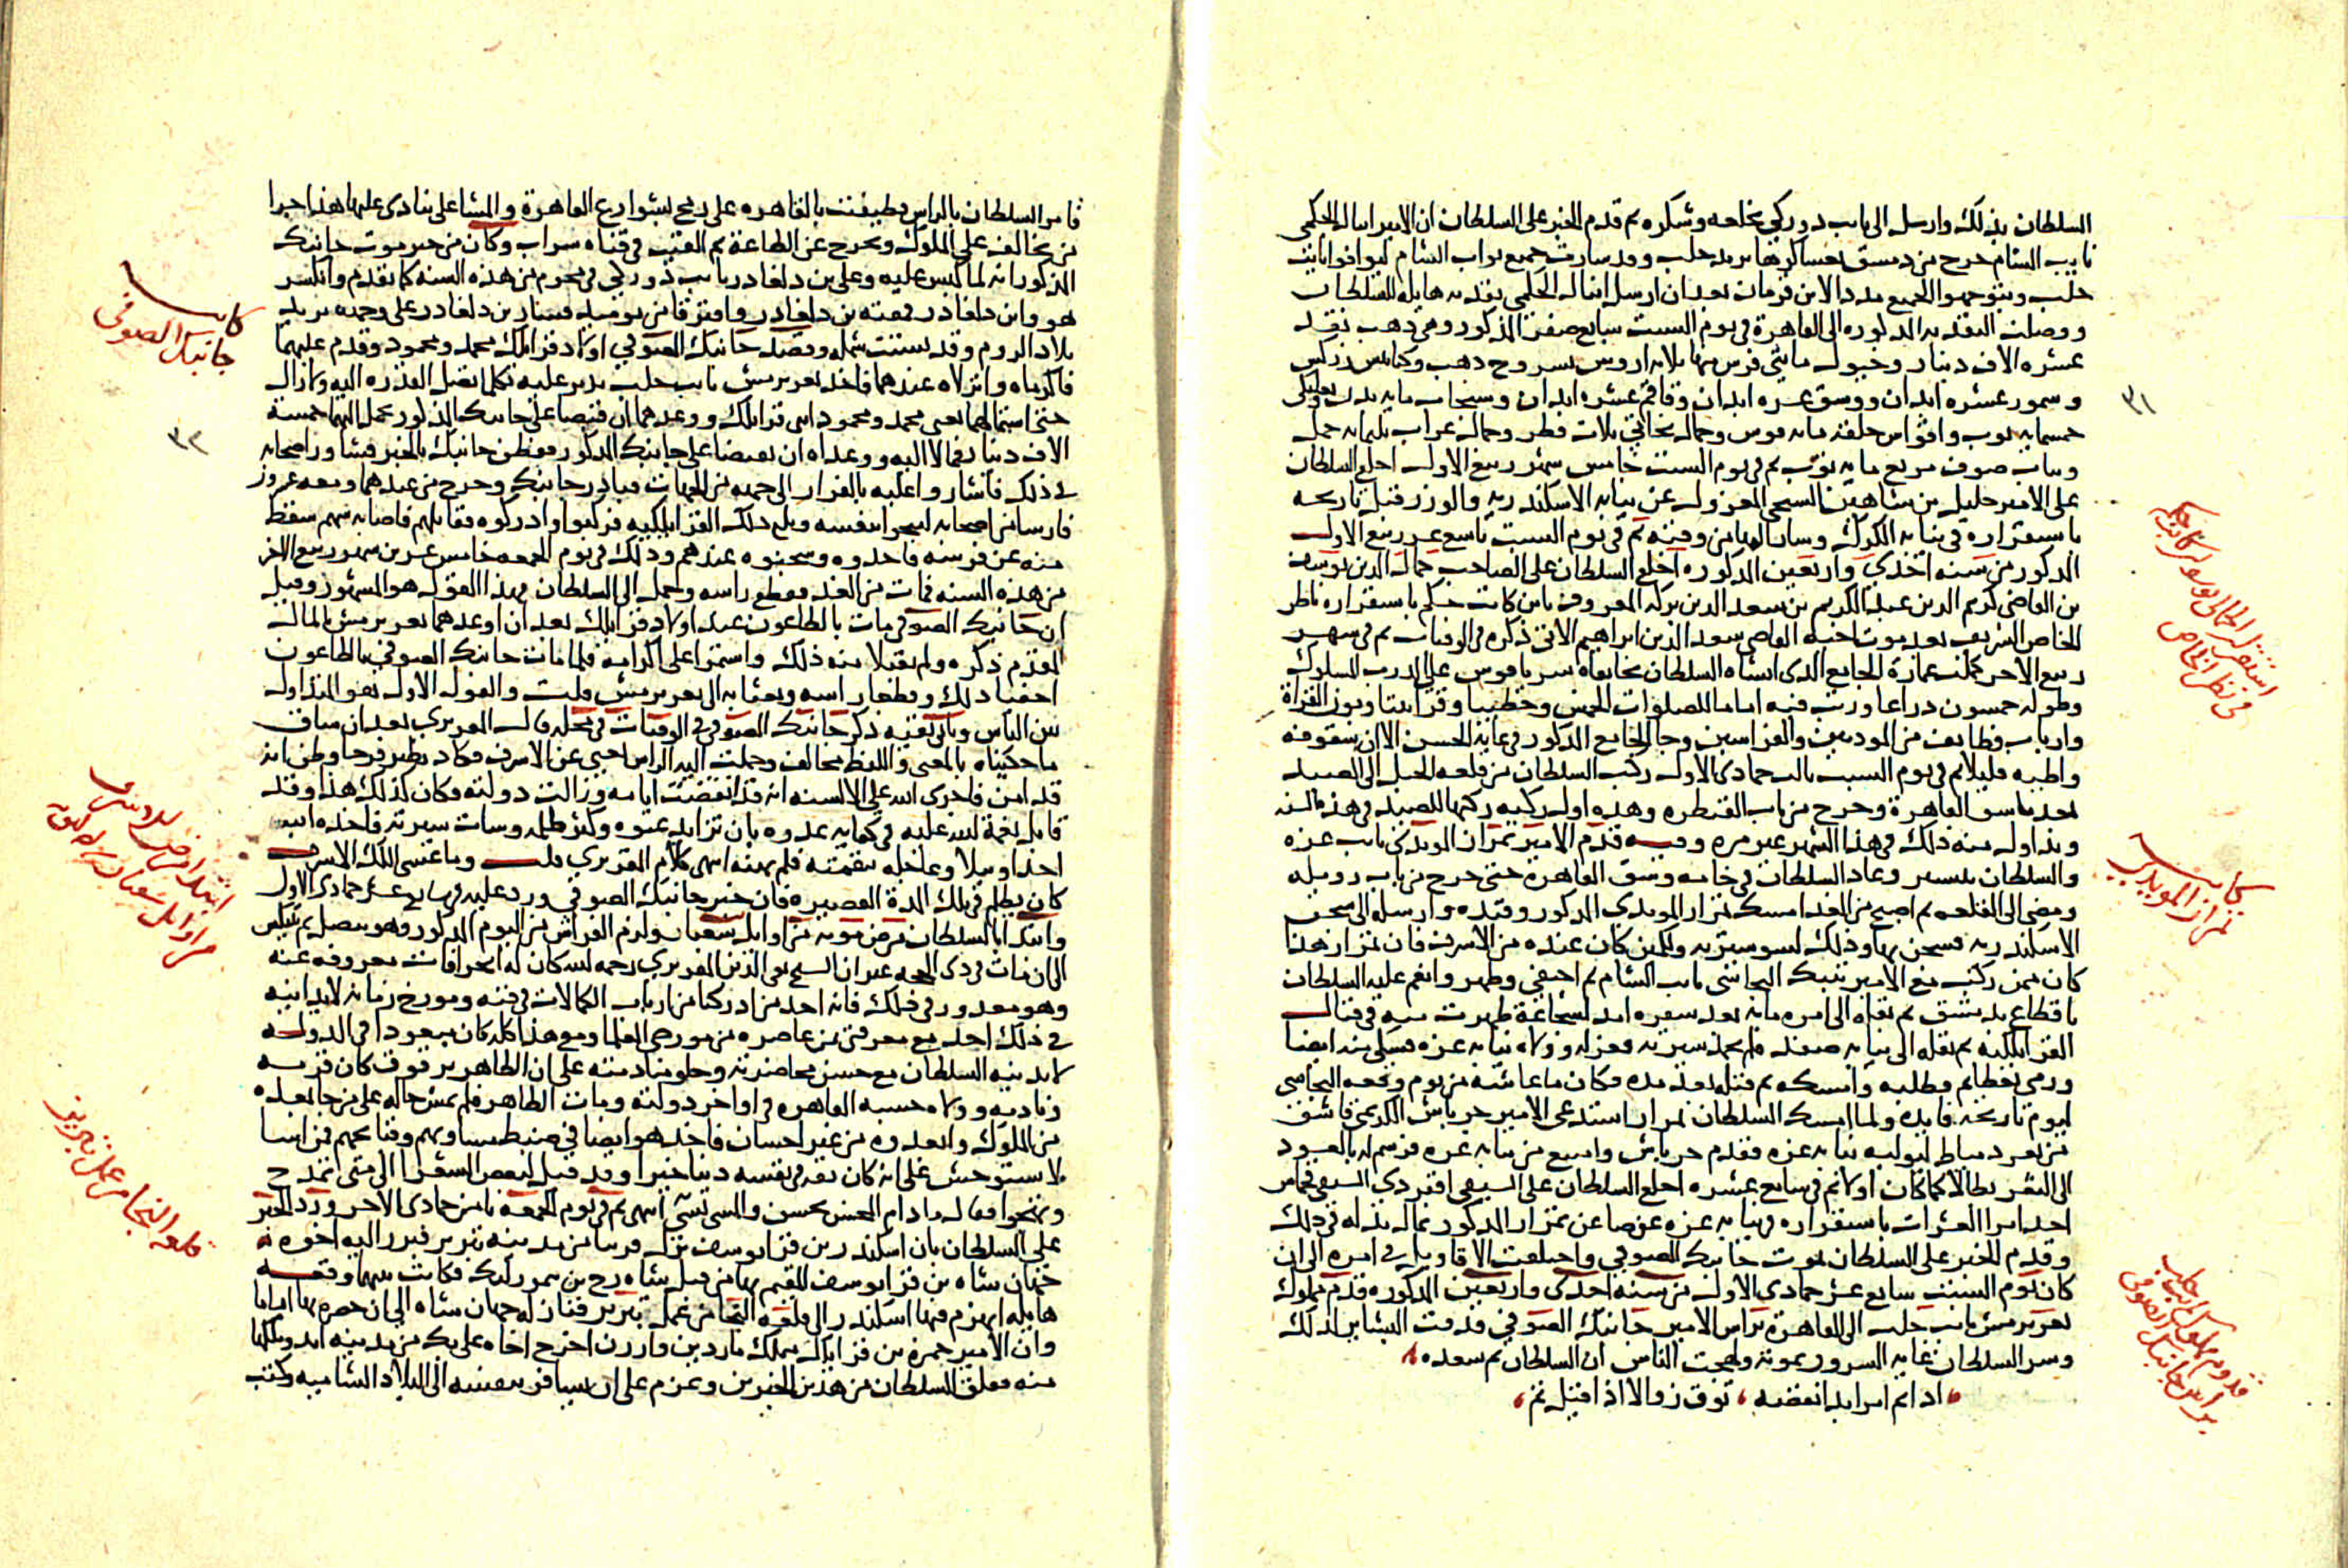 السلطان بذلك وارسل الى نايب دوركي بخلعه وشكره ثم قدم الخبر على السلطان ان الامير اينال الجكمي
نايب الشام خرج من دمشق بعساكرها يريد حلب وقد سارت جميع نواب الشام ليوافوا نايب
حلب ويتوجهوا الجميع مدد الابن قرمان بعد ان ارسل اينال الجكمي تقدمه هايله للسلطان
ووصلت التقدمه المذكوره الى القاهرة في يوم السبت سابع صفر المذكور وهي ذهب نقد
عشره الاف دينار وخيول مايتي فرس منها ثلاثه اروس بسروج ذهب وكنابيش زركش
وسمور عشره ابدان ووشق عشره ابدان وقاقم عشره ابدان وسنجاب مايه بدن وبعلبكي
خمسمايه ثوب واقواس حلقه مايه قوس وجمال بخاتي ثلاث قطر وجمال عراب ثلثمايه جمل
وثياب صوف مربع مايه ثوب ثم في يوم السبت خامس شهر ربيع الاول اخلع السلطان
على الامير خليل بن شاهين الشيخي المعزول عن نيابه الاسكندريه والوزر قبل تاريخه
باستقراره في نيابه الكرك وسار اليها من وقته ثم في يوم السبت تاسع عشر ربيع الاول
المذكور من سنه احدي واربعين المذكوره اخلع السلطان على الصاحب جمال الدين يوسف
بن القاضي كريم الدين عبد الكريم بن سعد الدين بركه المعروف بابن كاتب جكم باستقراره ناظر
الخاص الشريف بعد موت اخيه القاضي سعد الدين ابراهيم الاتي ذكره في الوفيات ثم في شهر
ربيع الاخر كملت عمارة الجامع الذي انشاه السلطان بخانقاه سرياقوس على الدرب المسلوك
وطوله خمسون ذراعا ورتب فيه اماما للصلوات الخمس وخطيبا وقراء
وارباب وظايف من الموذنين والفراشين وجا الجامع المذكور في غاية الحسن الا ان سقوفه
واطيه قليلا ثم في يوم السبت ثالث جمادى الاولى ركب السلطان من قلعه الجبل الى الصيد
بعد ما شق القاهرة وخرج من باب القنطره وهذه اول ركبه ركبها للصيد في هذه السنه
وتداول منه ذلك في هذا الشهر غير مره وفيه قدم الامير تمراز المويدي نايب غزه
والسلطان يتسير وعاد السلطان في خامسه وشق القاهرة حتى خرج من باب زويله
ومضى الى القلعه ثم اصبح من الغد امسك تمراز المويدي المذكور وقيده وارسله الى سجن
الاسكندريه فسجن بها وذلك لسو سيرته ولكمين كان عنده من الاشرف فان تمراز هذا
كان ممن ركب مع الامير تنبك البجاسي نايب الشام ثم اختفى وظهر وانعم عليه السلطان
باقطاع بدمشق ثم نقله الى امره مايه بعد سفره امد لشجاعة ظهرت منه في قتال
القرايلكيه ثم نقله الى نيابه صفد فلم تحمد سيرته فعزله وولاه نيابه غزه فشكي منه ايضا
ورمي بعظايم وطلبه وامسكه ثم قتله بعد مده فكان ما عاشه من يوم وقعه البجاسي
ليوم تاريخه فايده ولما امسك السلطان تمراز استدعى الامير جرباش الكريمي قاشق
من ثغر دمياط ليوليه نيابه غزه فقدم جرباش وامتنع من نيابه غزه فرسم له بالعود
الى الثغر بطالا كما كان اولا ثم في سابع عشره اخلع السلطان على السيفي اقبردي السيفي قجماس
احد امرا العشرات باستقراره في نيابه غزه عوضا عن تمراز المذكور بمال بذله في ذلك
وقدم الخبر على السلطان بموت جانبك الصوفي واختلفت الاقاويل في امره الى ان
كان يوم السبت سابع عشر جمادى الاول من سنة احدى واربعين المذكوره قدم مملوك
تغري برمش نايب حلب الى القاهرة براس الامير جانبك الصوفي فدقت البشاير لذلك
وسر السلطان غايه السرور بموته ولهجت الناس ان السلطان تم سعده
اذا تم امر ابدا نقصه توق زوالا اذا قيل تم
استقر الجمالي يوسف بن كاتب جكم
في نظر الخاص
كاينه
تمراز المويدي
قدوم مملوك نايب حلب
براس جانبك الصوفي
٣١
فامر السلطان بالراس فطيف بالقاهره على رمح لشوارع القاهرة والمشاعلي ينادى عليها هذا جزا
من يخالف على الملوك ويخرج عن الطاعة ثم القيت في قناه سراب وكان من خبر موت جانبك
المذكور انه لما كبس عليه وعلى بن دلغادر نايب دوركي في محرم من هذه السنه كما تقدم وانكسر
هو وابن دلغادر رفقته بن دلغادر وافترقا من يوميذ فسار بن دلغادر على وجهه يريد
بلاد الروم وقد تشتت شمله وقصد جانبك الصوفي اولاد قرايلك محمد ومحمود وقدم عليهما
فاكرماه وانزلاه عندهما فاخذ تغري برمش نايب حلب يدبر عليه بكل ما تصل القدره اليه ولا زال
حتى استمالهما يعني محمد ومحمود ابني قرايلك ووعدهما ان قبضا على جانبك المذكور بحمل اليهما خمسة
الاف دينار فمالا اليه ووعداه ان يقبضا على جانبك المذكور ففطن جانبك بالخبر فشاور اصحابه
في ذلك فاشاروا عليه بالفرار الى جهه من الجهات فبادر جانبك وخرج من عندهما ومعه عشرون
فارسا من اصحابه لينجوا بنفسه وبلغ ذلك القرايلكيه فركبوا وادركوه فقاتلهم فاصابه سهم سقط
منه عن فرسه فاخذوه وسجنوه عندهم وذلك في يوم الجمعه خامس عشرين شهر ربيع الاخر
من هذه السنه فمات من الغد فقطع راسه وحمل الى السلطان فهذا القول هو المشهور وقيل
ان جانبك الصوفي مات بالطاعون عند اولاد قرايلك بعد ان اوعدهما تغري برمش بالمال
المقدم ذكره ولم يقبلا منه ذلك واستمرا على اكرامه فلما مات جانبك الصوفي بالطاعون
اخفيا ذلك وقطعا راسه وبعثا به الى تغري برمش قلت والقول الاول هو المتداول
بين الناس وياتي بقيه ذكر جانبك الصوفي في الوفيات في محله قال المقريزي بعد ان ساق
ما حكيناه بالمعنى واللفظ مخالف وحملت اليه الراس يعني عن الاشرف فكاد يطير فرحا وظن انه
قد امن فاجرى الله على الالسنه انه قد انقضت ايامه وزالت دولته فكان كذلك هذا وقد
قابل نعمة الله عليه في كفايه عدوه بان تزايد عتوه وكثر ظلمه وسات سيرته فاخذه الله
اخذا وبيلا وعاجله بنقمته فلم يهنه انتهى كلام المقريزي قلت وما عسى الملك الاشرف
كان يظلم في تلك المدة القصيره فان خبر جانبك الصوفي ورد عليه في سابع عشر جمادى الاول
وابتدا بالسلطان مرض موته من اوايل شعبان ولزم الفراش من اليوم المذكور وهو ينصل ثم ينتكس
الى ان مات في ذى الحجه غير ان الشيخ تقي الدين المقريزي رحمه الله كان له انحرافات معروفه عنه
وهو معذور في ذلك فانه احد من ادركنا من ارباب الكمالات في فنه ومورخ زمانه لا يدانيه
في ذلك احد مع معرفتي بمن عاصره من مورخي العلما ومع هذا كله كان مبعودا في الدوله
لا يدنيه السلطان مع حسن محاضرته وحلو منادمته على ان الظاهر برقوق كان قربه
ونادمه وولاه حسبه القاهره في اواخر دولته ومات الظاهر فلم يمش حاله على من جا بعده
من الملوك وابعدوه من غير احسان فاخذ هو ايضا في ضبط مساويهم وقبايحهم فمن اسا
لا يستوحش على انه كان ثقه في نفسه دينا خيرا وقد قيل لبعض الشعرا الى متى تمدح
وتهجوا فقال ما دام المحسن يحسن والمسي يسي انتهى ثم في يوم الجمعة ثامن جمادى الاخر ورد الخبر
على السلطان بان اسكندر بن قرا يوسف نزل قريبا من مدينه تبريز فبرز اليه اخوه
جهان شاه بن قرا يوسف المقيم بها من قبل شاه رخ بن تيمور لنك فكانت بينهما وقعه
هايله انهزم فيها اسكندر الى قلعه النجا من عمل تبريز فنازله جهان شاه الى ان حصره بها اياما
وان الامير حمزه بن قرايلك متملك ماردين وارزن اخرج اخاه على بك من مدينه امد وملكها
منه فقلق السلطان من هذين الخبرين وعزم على ان يسافر بنفسه الى البلاد الشاميه وكتب
كاينه
جانبك الصوفي
٣٢
ابتدا مرض الاشرف
من اوايل شعبان
قلعه النجا من عمل تبريز